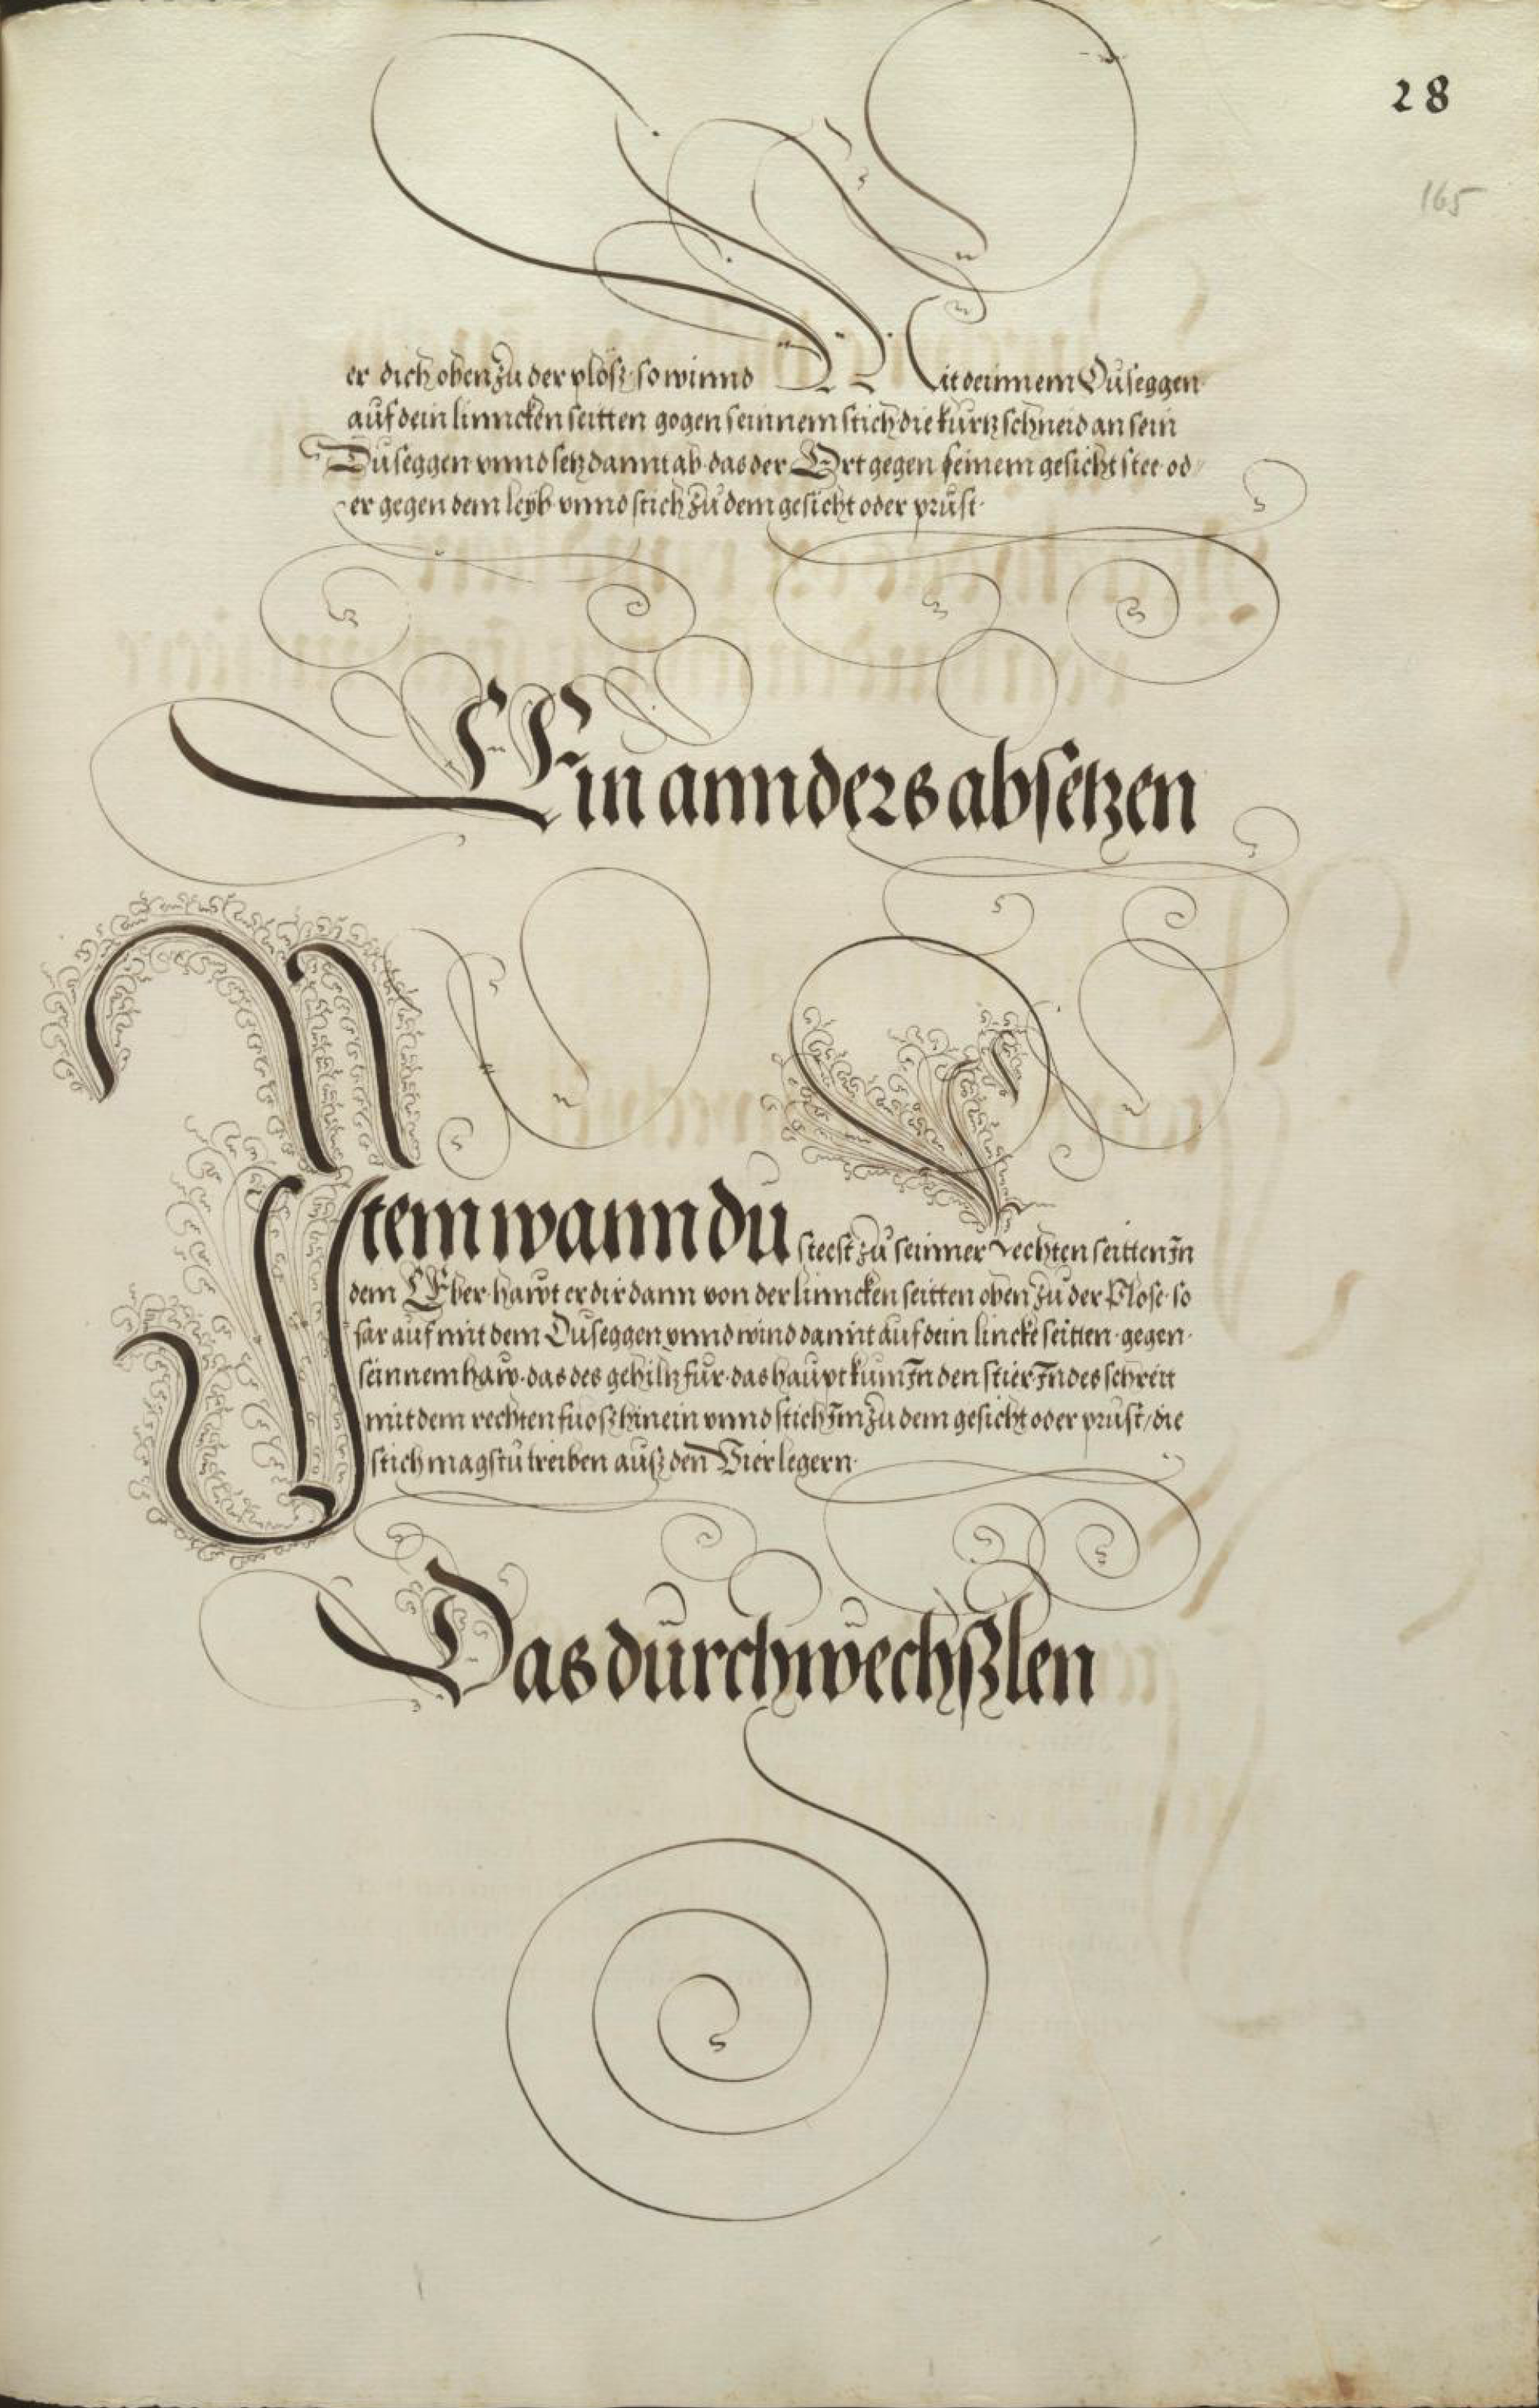 28
165
er dich oben zu der plösz so winnd Mit deinnem Duseggen
auf dein linncken seitten gogen seinnem stich die kurtz schneid an sein
Duseggen vnnd setz dannt ab das der Ort gegen seinem gesicht stee od
er gegen dem leyb vnnd stich zu dem gesicht oder prust
Ein annders absetzen
Item wann du steest zu seinner rechten seitten In
dem Eber hawt er dir dann von der linncken seitten oben zu der Plose so
far auf mit dem Duseggen vnnd wind damit auf dein lincke seitten gegen
seinnem haw das des gehiltz für das haupt kum In den stier Indes schreit
mit dem rechten fuosz hinein vnnd stich Im zu dem gesicht oder prust / die
stich magstu treiben ausz den Vier legern
Das durchwechszlen